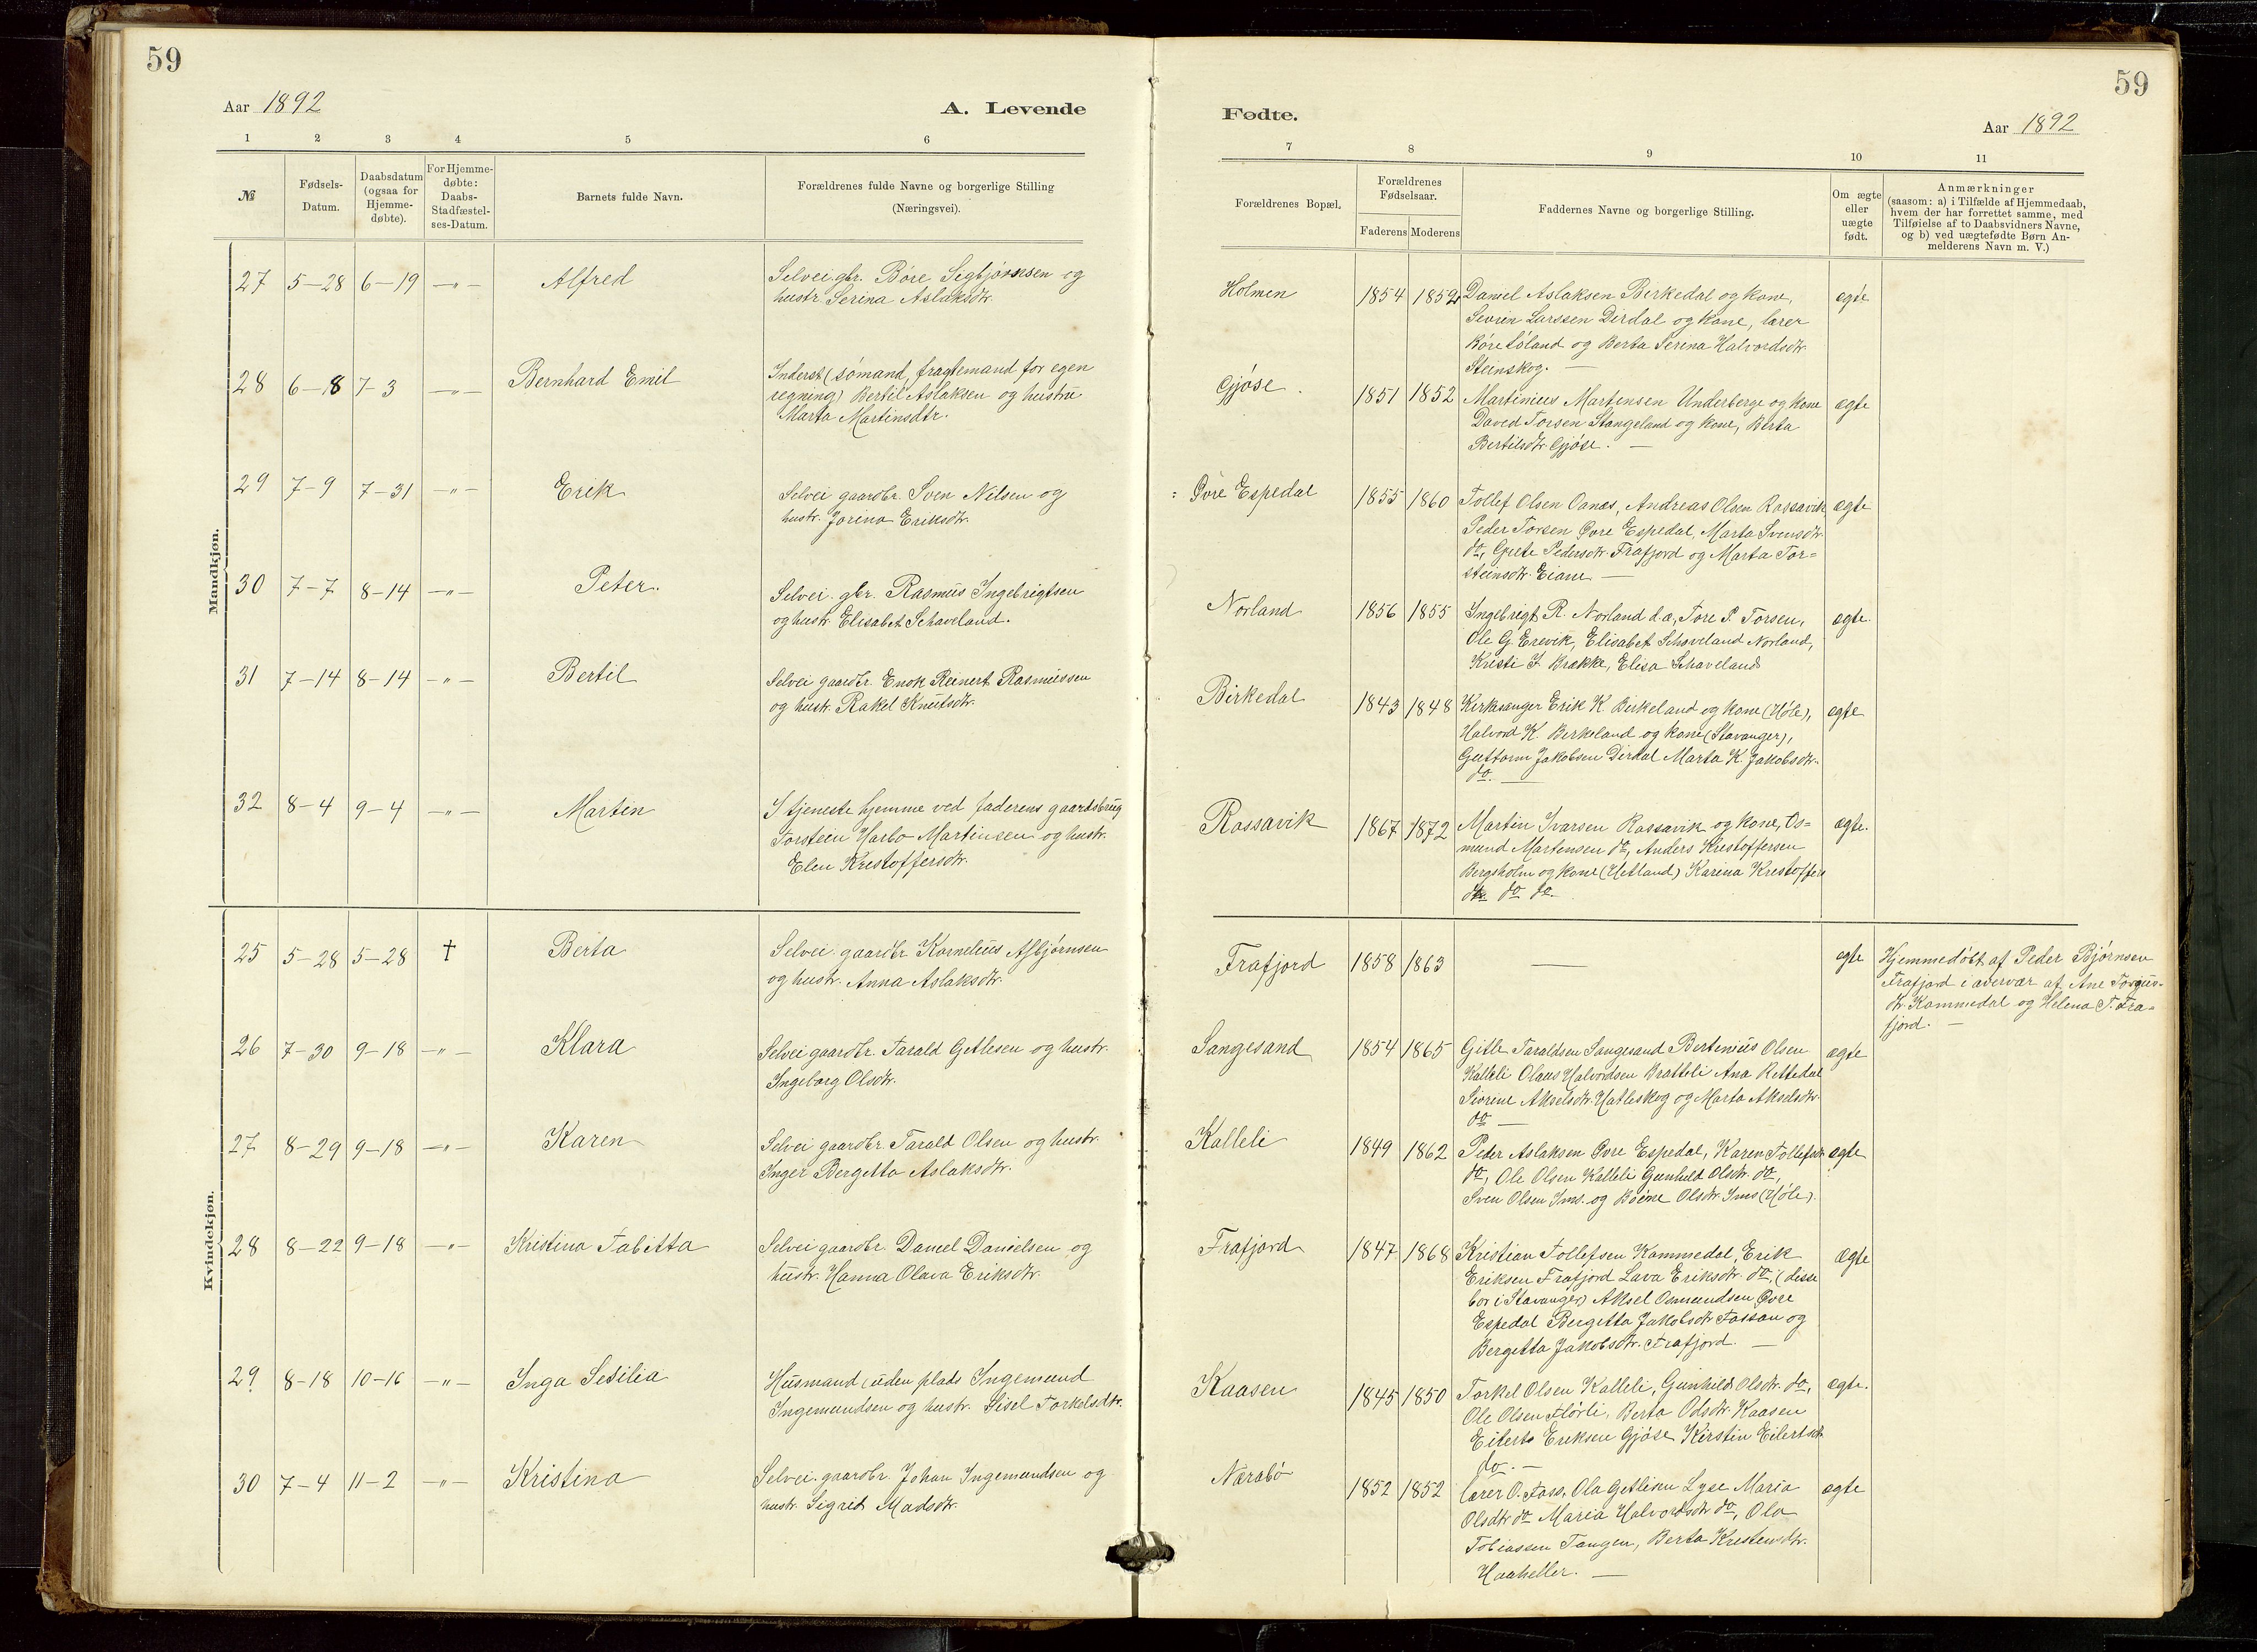 59
Aar 1892
A. Levende
1 2 3 4 5 6
№
Fødsels-Datum.
Daabsdatum (ogsaa for Hjemme-døbte).
For Hjemme-døbte: Daabs-Stadfæstel-ses-Datum.
Barnets fulde Navn.
Forældrenes fulde Navne og borgerlige Stilling
(Næringsvei).
Mandkjøn.
27 5-28 6-19 -"- Alfred Selvei. gbr. Børe Sigbjørnsen og
hustr. Serina Aslaksdtr.
28 6-18 7-3 -"- Bernhard Emil Inderst (sømand, fragtemand for egen
regning) Bertil Aslaksen og hustru
Marta Martinsdtr.
29 7-9 7-31 -"- Erik Selvei gaardbr. Sven Nilsen og
hustr. Jorina Eriksdtr.
30 7-7 8-14 -"- Peter. Selvei. gbr. Rasmus Ingebrigtsen
og hustr. Elisabet Schaveland.
31 7-14 8-14 -"- Bertil Selvei gaardbr. Enok Reinert Rasmussen
og hustr. Rakel Knutsdtr.
32 8-4 9-4 -"- Martin I tjeneste hjemme ved faderens gaardsbrug
Torstein Harbo Martinsen og hustr.
Elen Kristoffersdtr.
Kvindekjøn.
25 5-28 5-28 † Berta Selvei. gaardbr. Kornelius Asbjørnsen
og hustr. Anna Aslaksdtr.
26 7-30 9-18 -"- Klara Selvei gaardbr. Tarald Getlesen og hustr.
Ingeborg Olsdtr.
27 8-29 9-18 -"- Karen Selvei gaardbr. Tarald Olsen og hustr.
Inger Bergetta Aslaksdtr.
28 8-22 9-18 -"- Kristina Tabitta Selvei gaardbr. Daniel Danielsen og
hustr. Hanna Olava Eriksdtr.
29 8-18 10-16 -"- Inga Sesilia Husmand uden plads Ingemund
Ingemundsen og hustr. Sisel Torkelsdtr.
30 7-4 11-2 -"- Kristina Selvei. gaardbr. Johan Ingemundsen og
hustr. Sigrid Madsdtr.
59
Fødte.
Aar 1892
7 8 9 10 11
Forældrenes Bopæl.
Forældrenes Fødselsaar.
Faderens Moderens
Faddernes Navne og borgerlige Stilling.
Om ægte eller uægte født.
Anmærkninger
(saasom: a) i Tilfælde af Hjemmedaab,
hvem der har forrettet samme, med
Tilføielse af to Daabsvidners Navne,
og b) ved uægtefødte Børn An-
melderens Navn m. V.)
Holmen 1854 1852 Daniel Aslaksen Birkedal og kone, ægte
Sevrin Larssen Dirdal og kone, lærer
Børe Løland og Berta Serina Halvordsdtr.
Steinskog. —
Gjøse. 1851 1852 Martinius Martensen Underberge og kone ægte
David Torsen Stangeland og kone, Berta
Bertilsdtr. Gjøse. —
Øvre Espedal 1855 1860 Tollef Olsen Oanæs, Andreas Olsen Rossavik ægte
Peder Torsen Øvre Espedal, Marta Svensdtr.
do, Grete Pedersdtr. Frafjord og Marta Tor=
steinsdtr. Eiane —
Norland 1856 1855 Ingebrigt R. Norland d.æ, Tore P. Torsen, ægte.
Ole G Erevik, Elisabet Schaveland Norland,
Kristi I. Brække, Elisa Schaveland
Birkedal 1843 1848 Kirkesanger Erik K. Birkeland og kone (Høle), ægte
Halvord K. Birkeland og kone (Stavanger),
Guttorm Jakobsen Dirdal Marta K. Jakobsdtr.
do. —
Rossavik 1867 1872 Martin Ivarsen Rossavik og kone, Os= ægte.
mund Martensen do, Anders Kristoffersen
Bergsholm og kone (Hetland) Karina Kristoffers
dtr do do
Frafjord 1858 1863 — ægte Hjemmedøbt af Peder Bjørnsen
Frafjord i overvær af Ane Torgus-
dtr. Kommedal og Helena T. Fra=
fjord. —
Songesand 1854 1865 Gitle Taraldsen Songesand Bertinius Olsen ægte
Kalleli Olaus Halvordsen Bratteli Ana Rettedal
Sivrine Akselsdtr. Hatleskog og Marta Akselsdtr.
do —
Kalleli 1849 1862 Peder Aslaksen Øvre Espedal, Karen Tollefsdtr. ægte
do, Ole Olsen Kalleli Gunhild Olsdtr. do,
Sven Olsen Ims. og Olsdtr. Ims (Høle).
Frafjord 1847 1868 Kristian Tollefsen Kommedal, Erik ægte
Eriksen Frafjord Lava Eriksdtr. do, (disse
bor i Stavanger) Aksel Osmundsen Øvre
Espedal Bergetta Jakobsdtr. Fossan og
Bergetta Jakobsdtr. Frafjord. —
Kaasen 1845 1850 Torkel Olsen Kalleli, Gunhild Olsdtr. do, ægte.
Ole Olsen Flørli, Berta Odsdtr. Kaasen
Eilert Eriksen Gjøse Kirstin Eilertsdtr.
do. —
Nærabø 1852 1852 lærer O. Foss, Ola Getlesen Lyse Maria ægte
Olsdtr. do Maria Halvordsdtr. do, Ola
Tobiassen Tangen, Berta Kristensdtr.
Haaheller. —